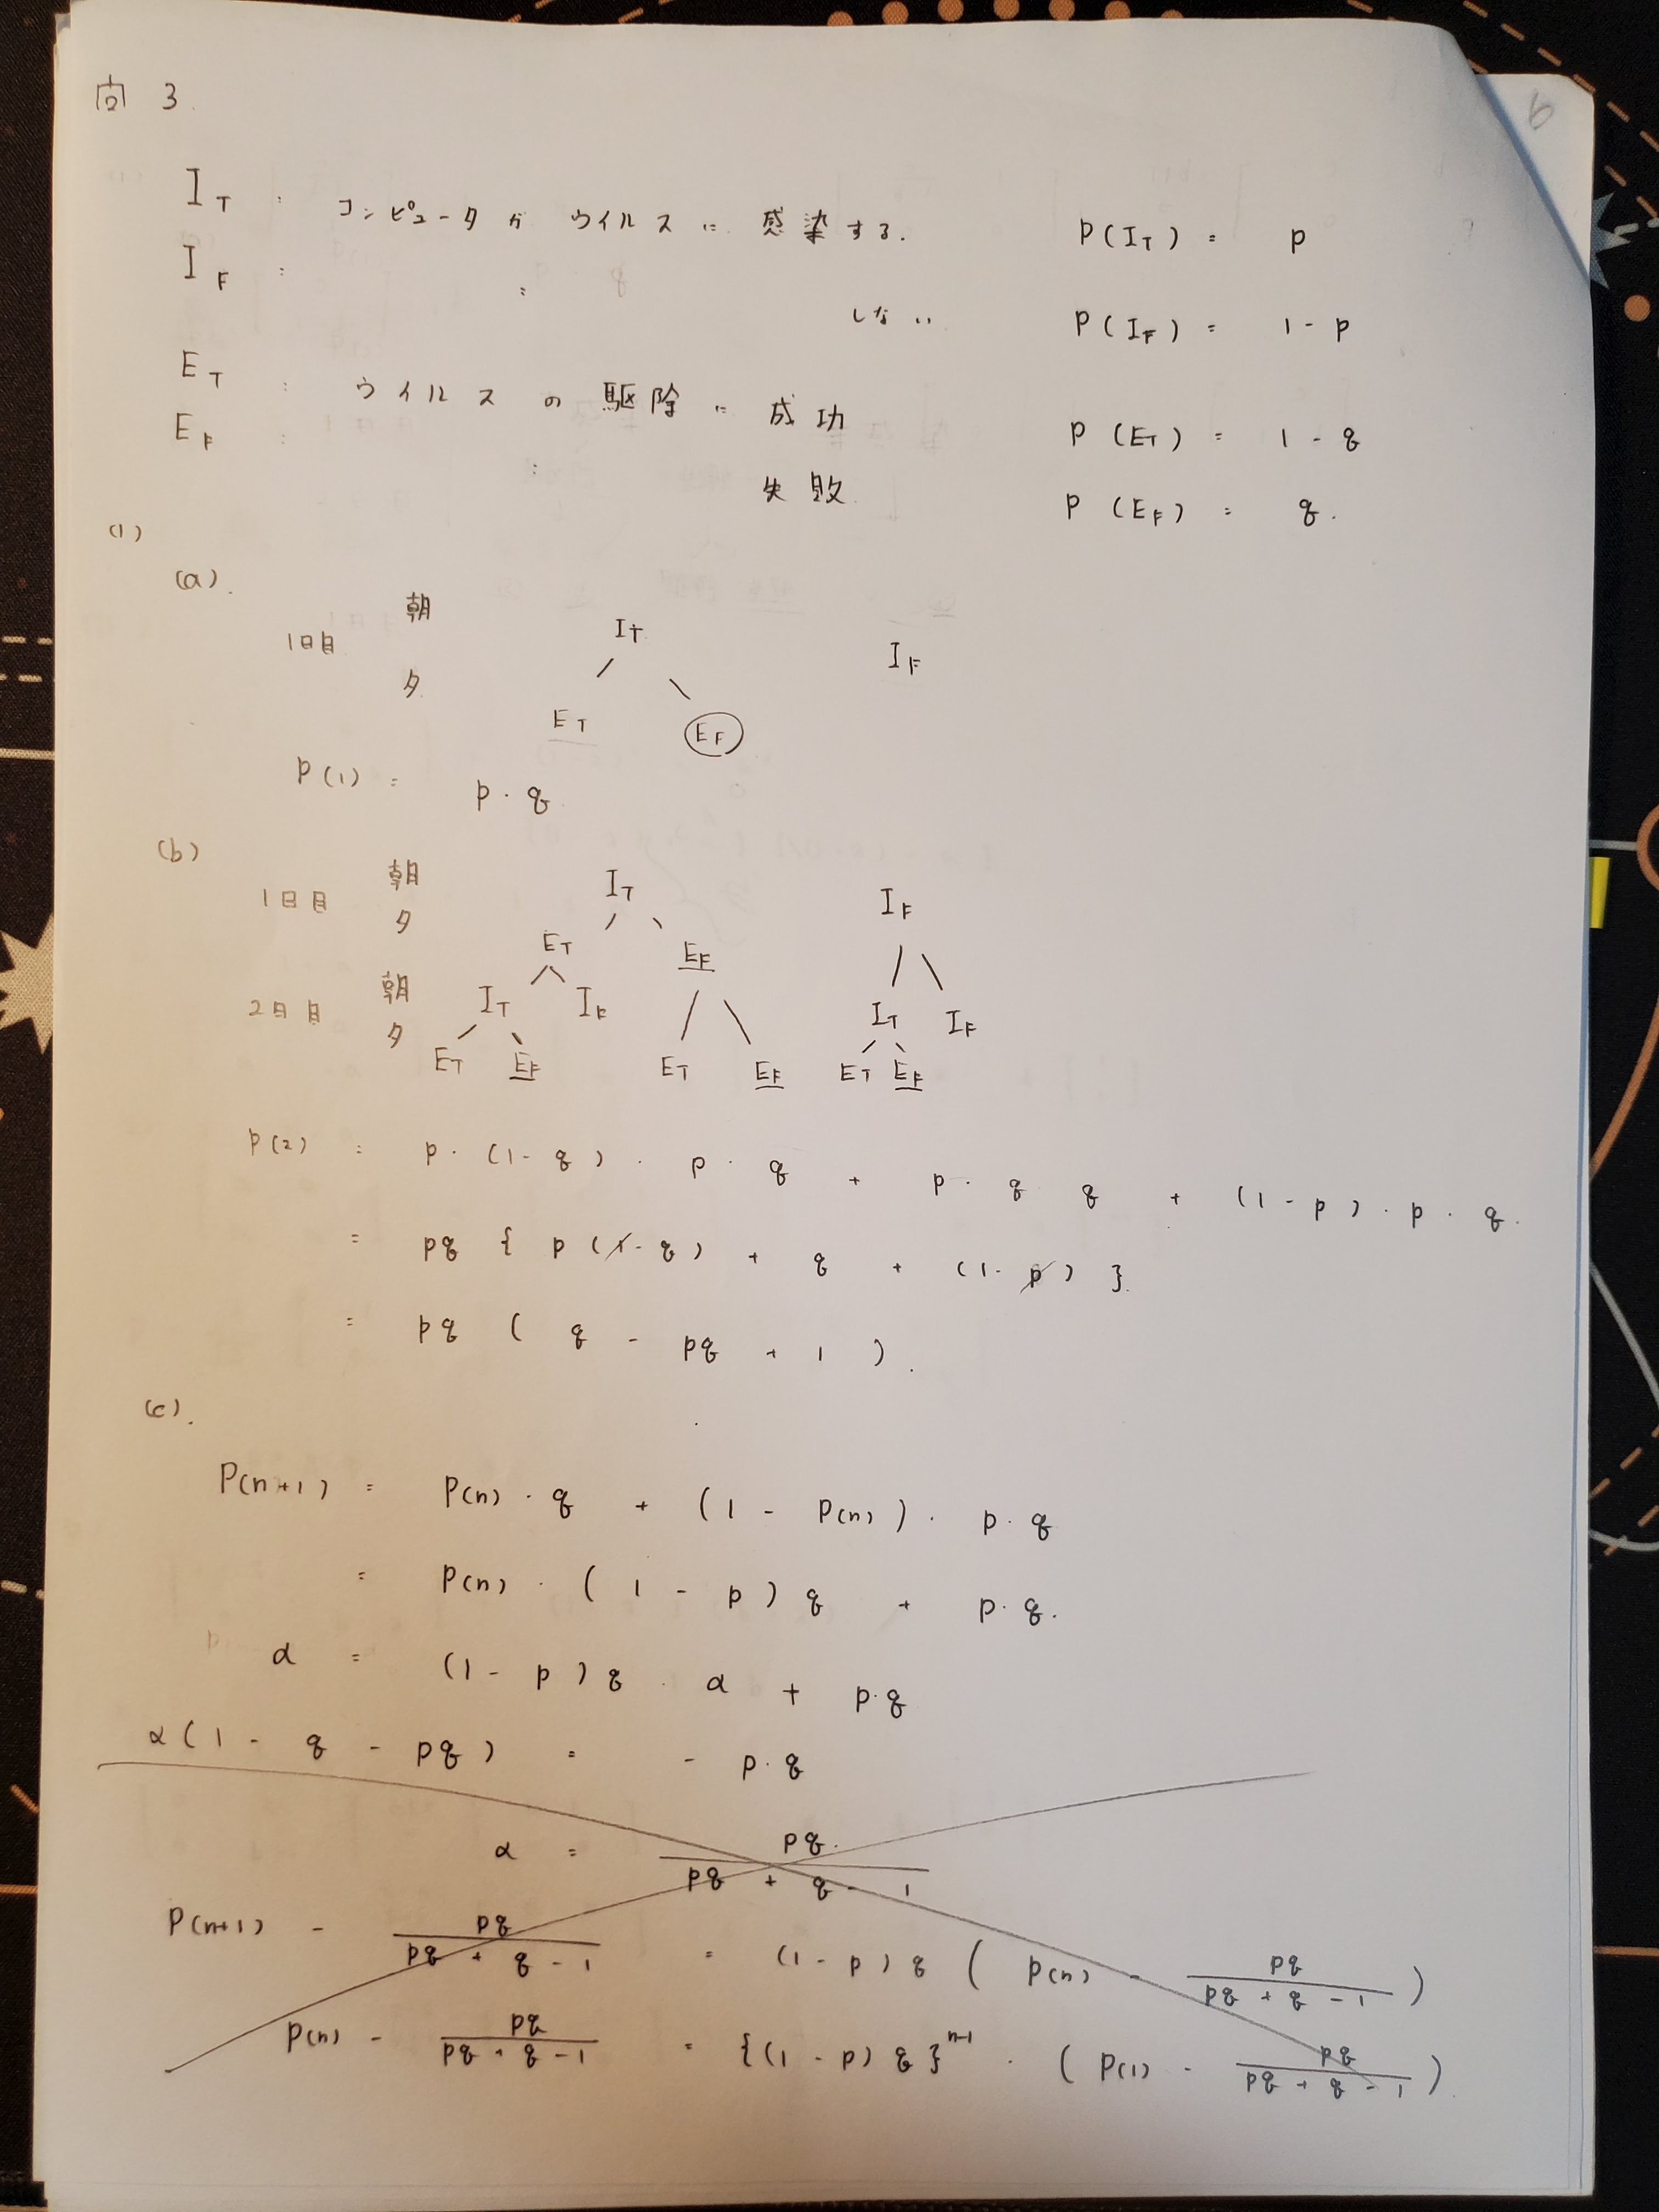 問 3.
6
I_T : コンピュータが ウイルスに 感染する. P(I_T) = p
I_F : : しない P(I_F) = 1 - p
E_T : ウイルス の 駆除に 成功 P(E_T) = 1 - q
E_F : : 失敗. P(E_F) = q.
(1)
(a).
1日目 朝 I_T I_F
夕 E_T E_F
P(1) = p・q
(b)
1日目 朝 I_T I_F
夕 E_T E_F
2日目 朝 I_T I_F I_T I_F
夕 E_T E_F E_T E_F E_T E_F
P(2) = p・(1-q)・p・q + p・q q + (1-p)・p・q.
= pq { p(1-q) + q + (1-p) }
= pq ( q - pq + 1 ).
(c).
P(n+1) = P(n)・q + (1 - P(n))・p・q
= P(n)・(1 - p) q + p・q.
α = (1 - p) q・α + p・q
α(1 - q - pq) = - p・q
α = pq / (pq + q - 1)
P(n+1) - pq / (pq + q - 1) = (1-p) q ( P(n) - pq / (pq + q - 1) )
P(n) - pq / (pq + q - 1) = {(1-p) q}^{n-1}・( P(1) - pq / (pq + q - 1) )